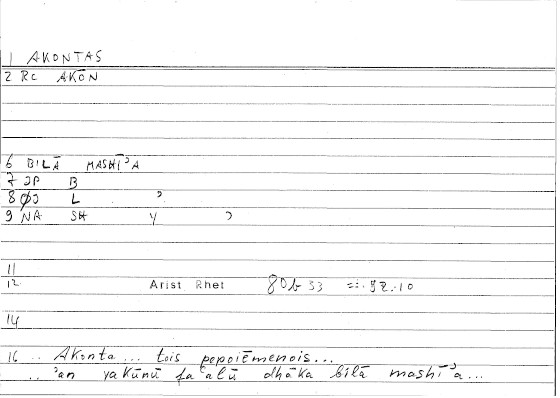 1 AKONTAS
2 Rc AKŌN
6 BILĀ MASHĪʾA
7 JP B
8 ØJ L ʾ
9 NA SH Y ʾ
11
12 Arist Rhet 80b 33 =:. 92.10
14
16 .. Akonta... tois pepoiēmenois...
.. ʾan yakūnū faʿalū dhāka bilā mashīʾa...